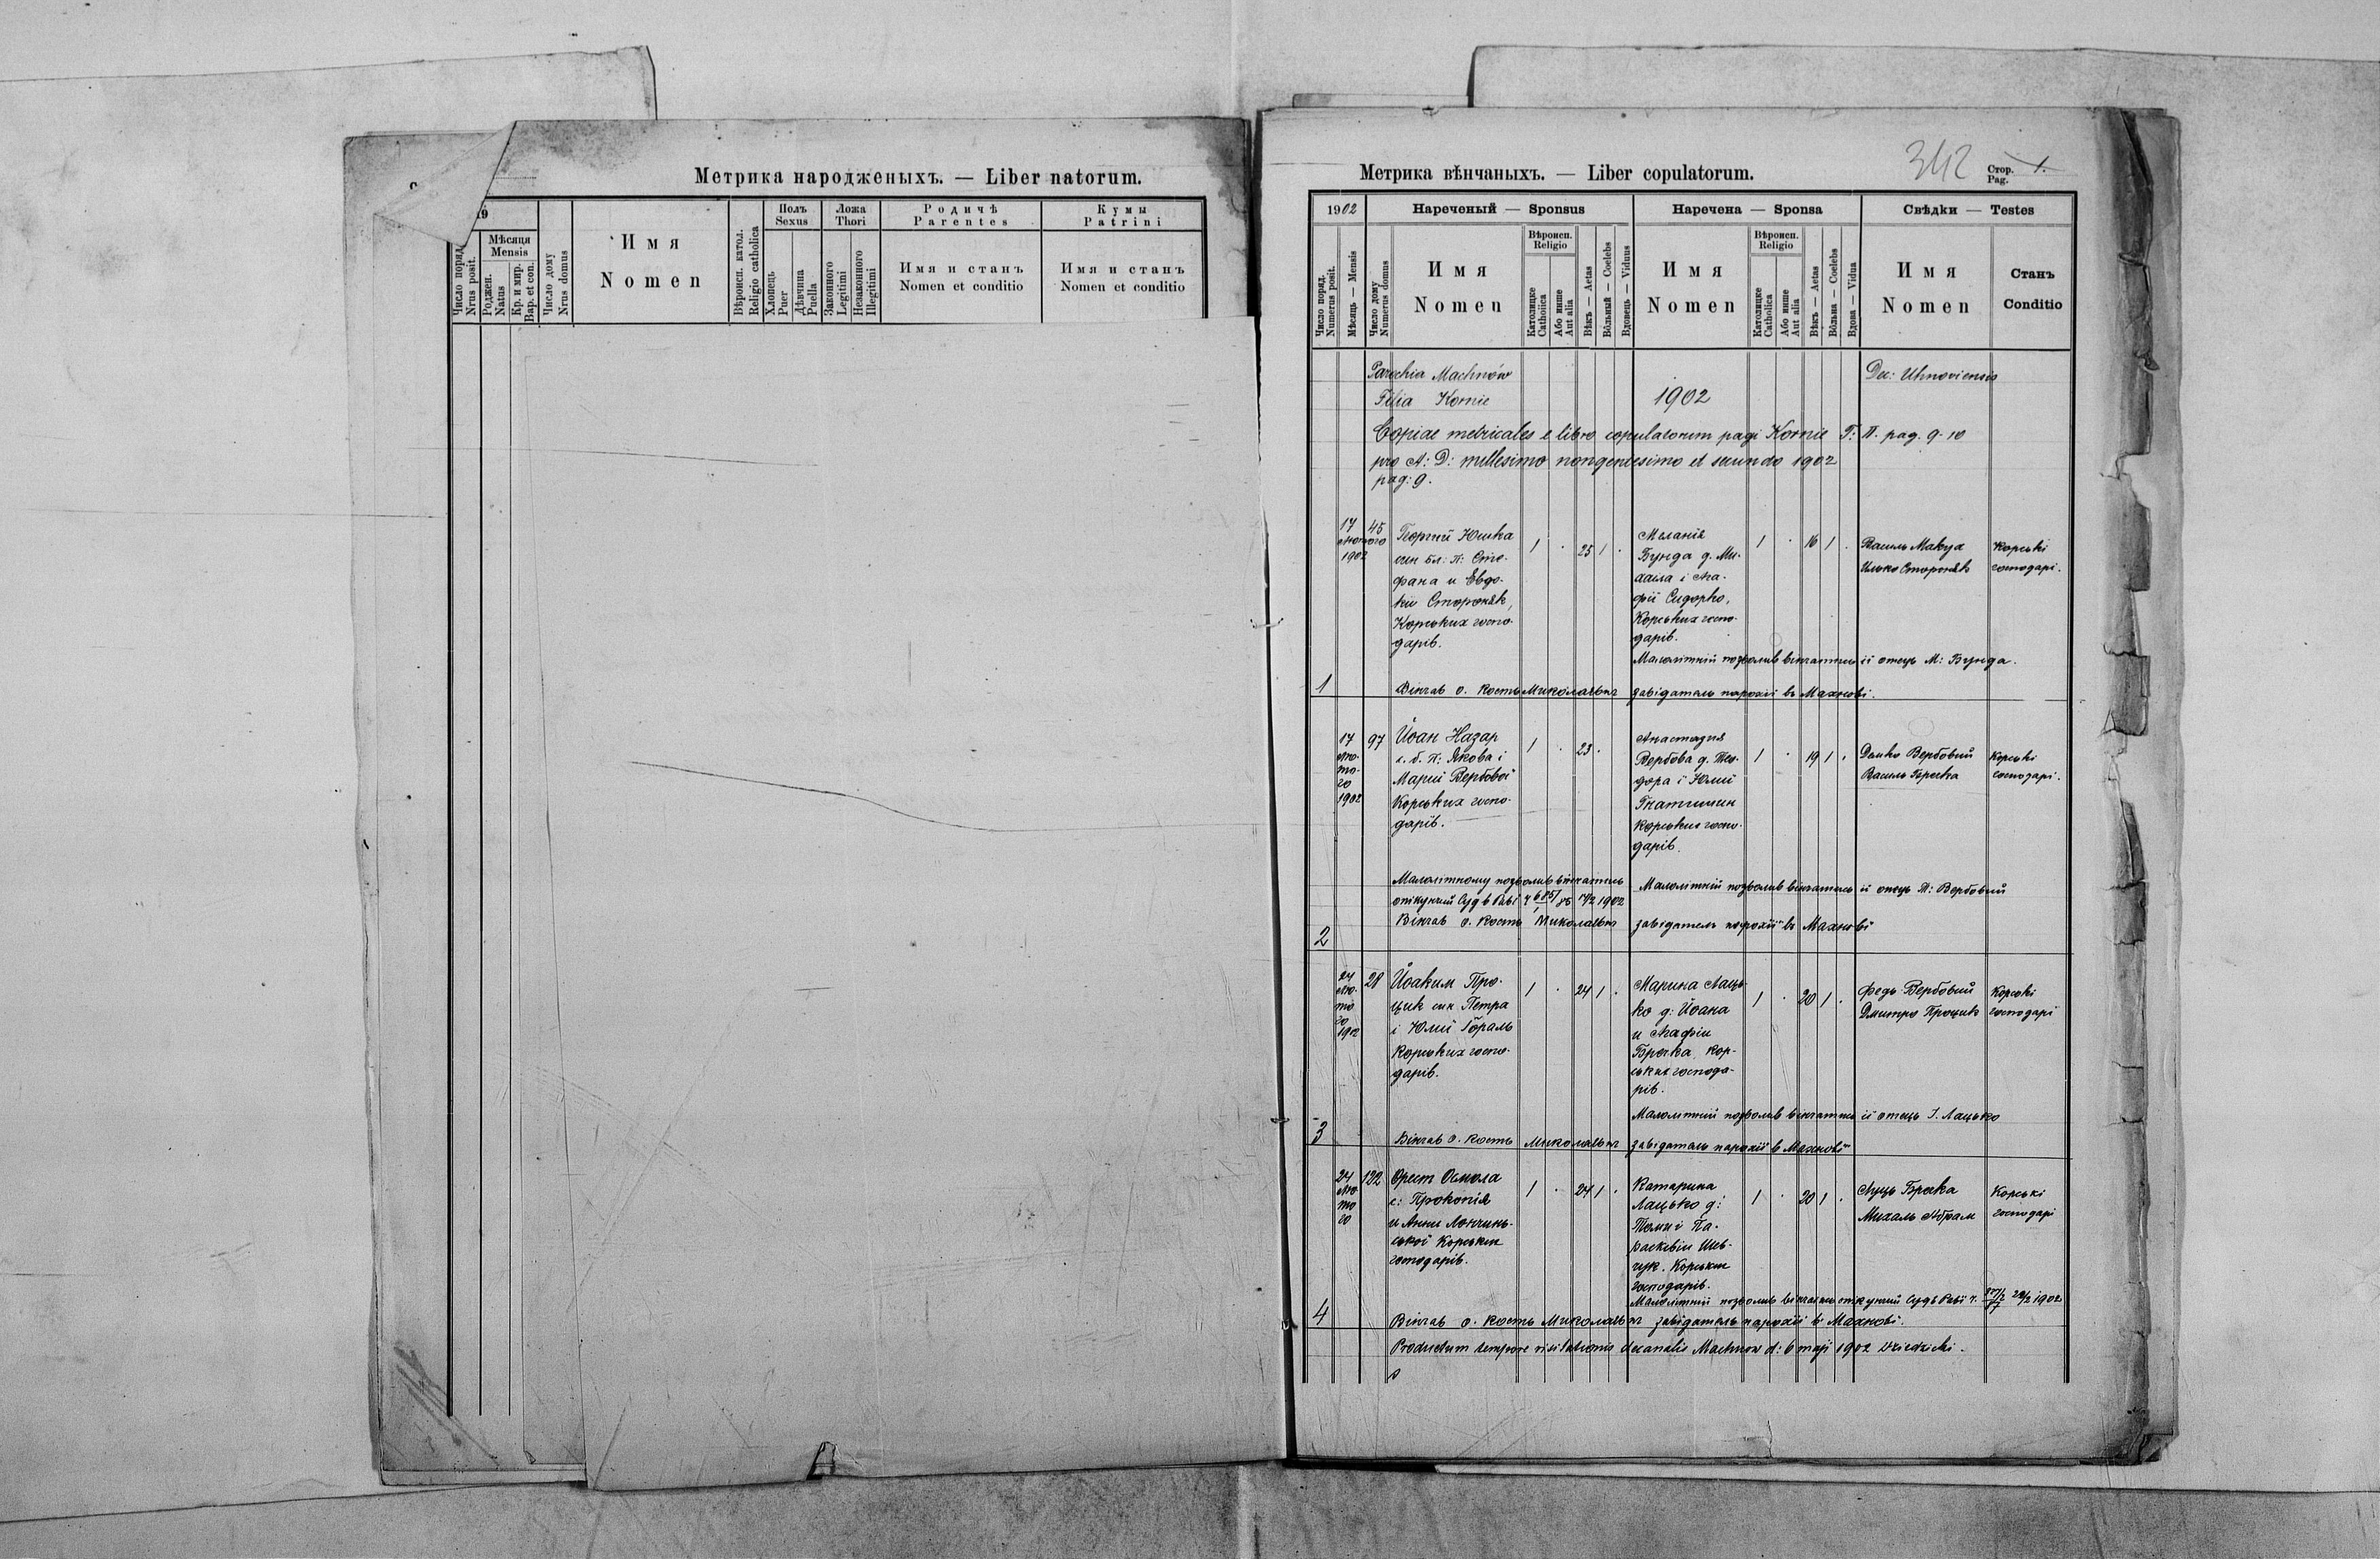 Метрика народженыхъ. — Liber natorum.
19
Число поряд.
Nrus posit.
Мѣсяця
Mensis
Роджен.
Natus
Кр. и мир.
Bap. et con.
Число дому
Nrus domus
Имя
Nomen
Вѣроисп. катол.
Religio catholica
Полъ
Sexus
Хлопець
Puer
Дѣвчина
Puella
Ложа
Thori
Законного
Legitimi
Незаконного
Illegitimi
Родичѣ
Parentes
Имя и станъ
Nomen et conditio
Кумы
Patrini
Имя и станъ
Nomen et conditio
Метрика вѣнчаныхъ. — Liber copulatorum.
342
Стор.
Pag.
1.
1902
Нареченый — Sponsus
Наречена — Sponsa
Свѣдки — Testes
Число поряд.
Numerus posit.
Мѣсяць — Mensis
Число дому
Numerus domus
Имя
Nomen
Вѣроисп.
Religio
Католицке
Catholica
Або инше
Aut alia
Вѣкъ — Aetas
Вôльный — Coelebs
Вдовець — Viduus
Имя
Nomen
Вѣроисп.
Religio
Католицке
Catholica
Або инше
Aut alia
Вѣкъ — Aetas
Вôльна — Coelebs
Вдова — Vidua
Имя
Nomen
Станъ
Conditio
Parochia Machnów
Dec: Uhnoviensis
Filia Kornie
1902
Copiae metricales e libro copulatorum pagi Kornie T: II. pag. 9-10
pro A: D: millesimo nongentesimo et secundo 1902
pag: 9.
17
Лютого
1902
45
Георгий Юшка
син бл: п: Сте-
фана и Евдо-
кіи Стороняк,
Корських госпо-
дарів.
1 . 25 1 .
Меланія
Бунда д. Ми-
хаила і Ага-
фії Сидорко,
Корських госпо-
дарів.
1 . 16 1 .
Василь Макух
Илько Стороняк
Корські
господарі.
Малолітній позволив вінчатись її отець М: Бунда.
1
Вінчав о. Кость Миколаєвич завідатель парохії в Махнові.
17
Лю-
то-
го
1902
97
Йоан Назар
с. б. п: Якова і
Марії Вербової
Корських госпо-
дарів.
1 . 23 .
Анастазия
Вербова д. Тео-
дора і Юлії
Гнатишин
Корських госпо-
дарів.
1 . 19 1 .
Демко Вербовий
Василь Брочка
Корські
господарі.
Малолітному позволив вінчатись
опікунчий Суд в Раві
1902
Малолітній позволив вінчатись її отець Т: Вербовий
Вінчав о. Кость Миколаєвич завідатель парохії в Махнові
2
24
Лю-
то
го
1902
28
Йоаким Про-
цик син Петра
і Юлії Гораль
Корських госпо-
дарів.
1 . 24 1 .
Марина Лаць-
ко д: Йоана
и Агафіи
Брочка, Кор-
ських господа-
рів.
1 . 20 1 .
Федь Вербовий
Дмитро Процик
Корські
господарі
Малолітній позволив вінчатись її отець І. Лацько
3
Вінчав о. Кость Миколаєвич завідатель парохії в Махнові
24
Лю
то
го
122
Орест Осмола
с: Прокопія
и Анни Лончинь-
ської Корських
господарів.
1 . 24 1 .
Катарина
Лацько д:
Томи і Па-
раскевіи Шев-
чук. Корських
господарів.
1 . 20 1 .
Луць Брочка
Михаль Абрам
Корські
господарі
Малолітній позволив вінчатись опікунчий Суд в Раві ч. 1902
4
Вінчав о. Кость Миколаєвич завідатель парохії в Махнові.
Productum tempore visitationis decanalis Machnow d: 6 maji 1902 Dziedzicki.